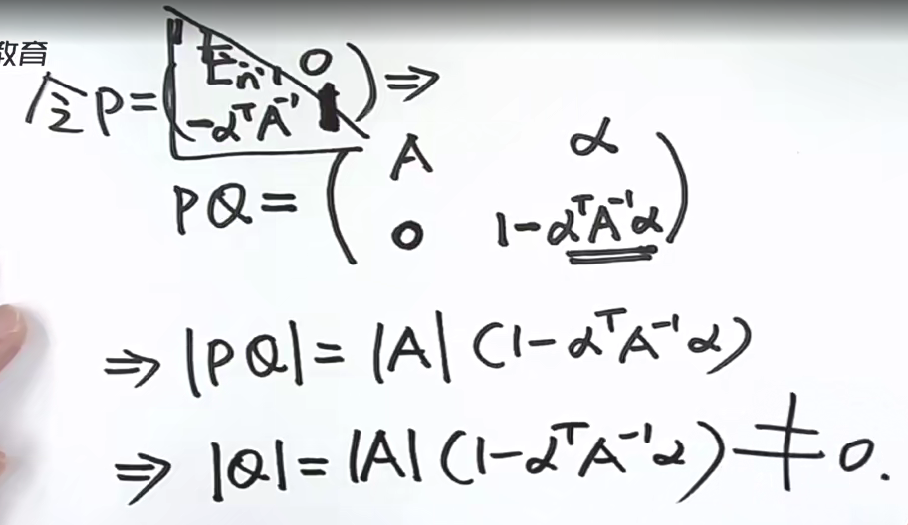 教育
令P=(E_{n-1} 0
-α^T A^{-1} 1)⇒
PQ=(A α
0 1-α^T A^{-1} α)
⇒|PQ|=|A|(1-α^T A^{-1} α)
⇒|Q|=|A|(1-α^T A^{-1} α)≠0.